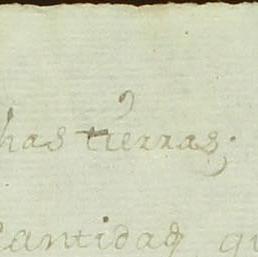 has tierras;
Cantidad qu